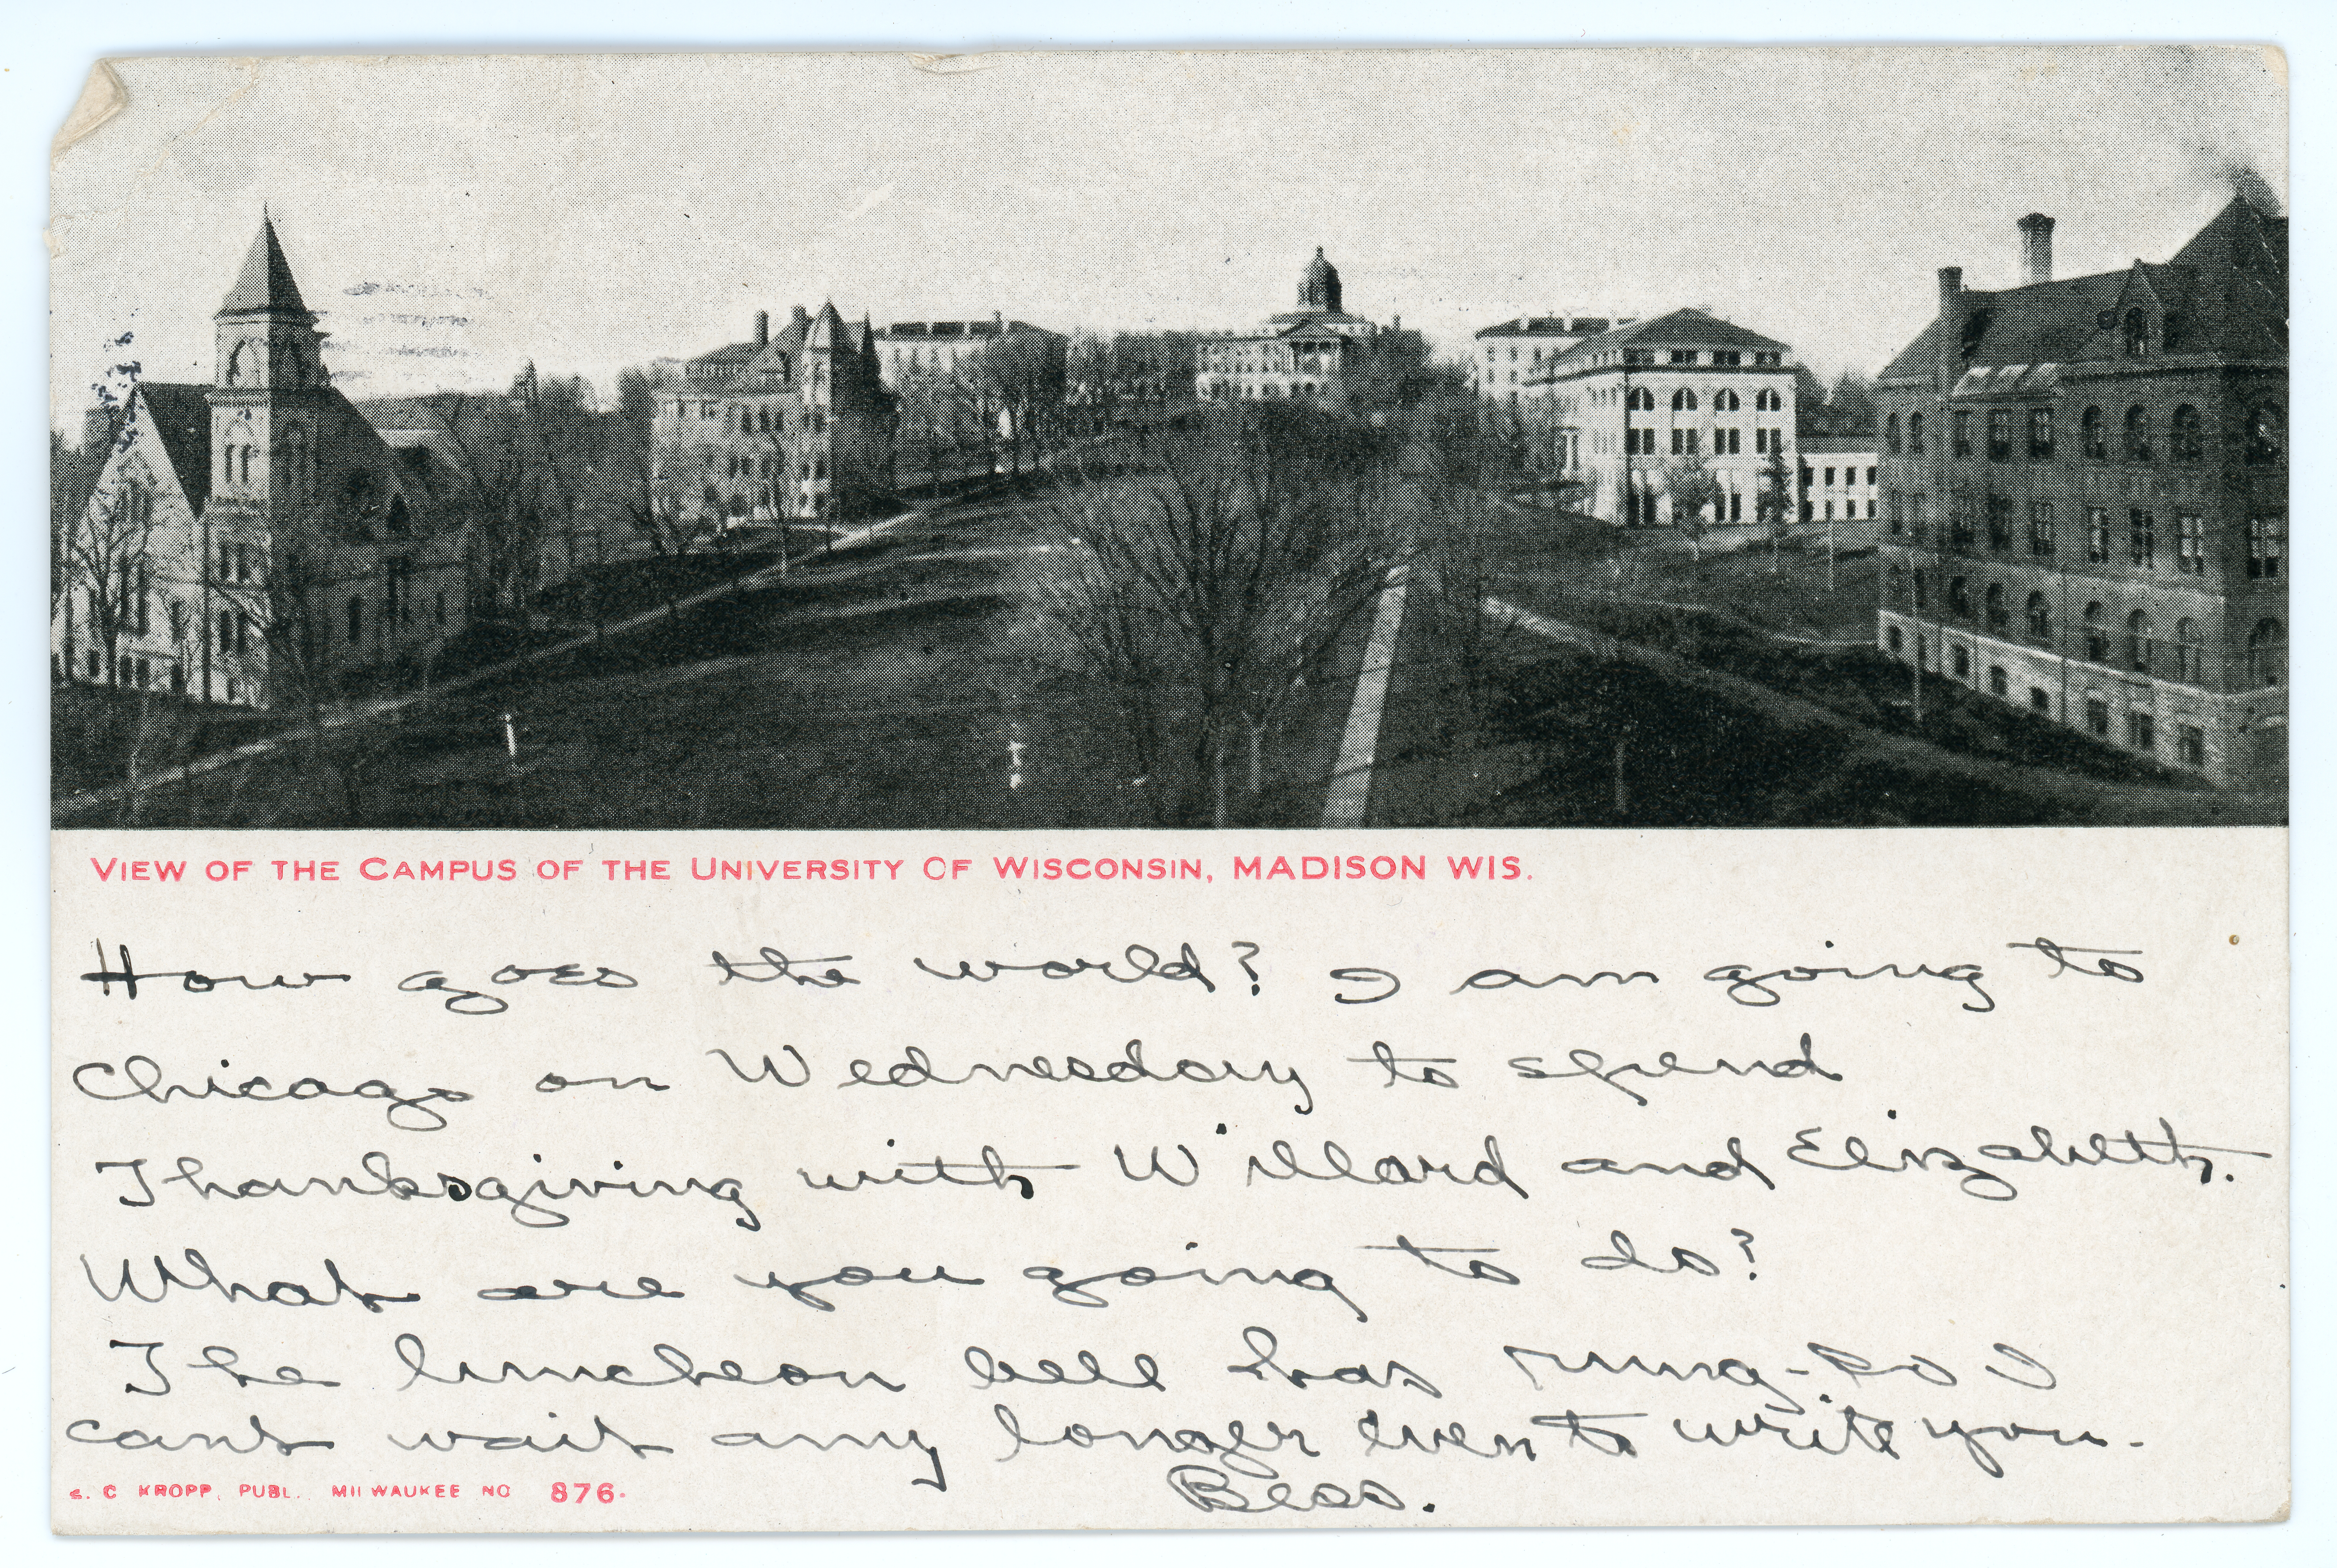 VIEW OF THE CAMPUS OF THE UNIVERSITY OF WISCONSIN, MADISON WIS.
How goes the world? I am going to
Chicago on Wednesday to spend
Thanksgiving with Willard and Elizabeth.
What are you going to do?
The luncheon bell has rung - so I
cant wait any longer even to write you.
Bess.
E. C KROPP, PUBL. MILWAUKEE NO 876.